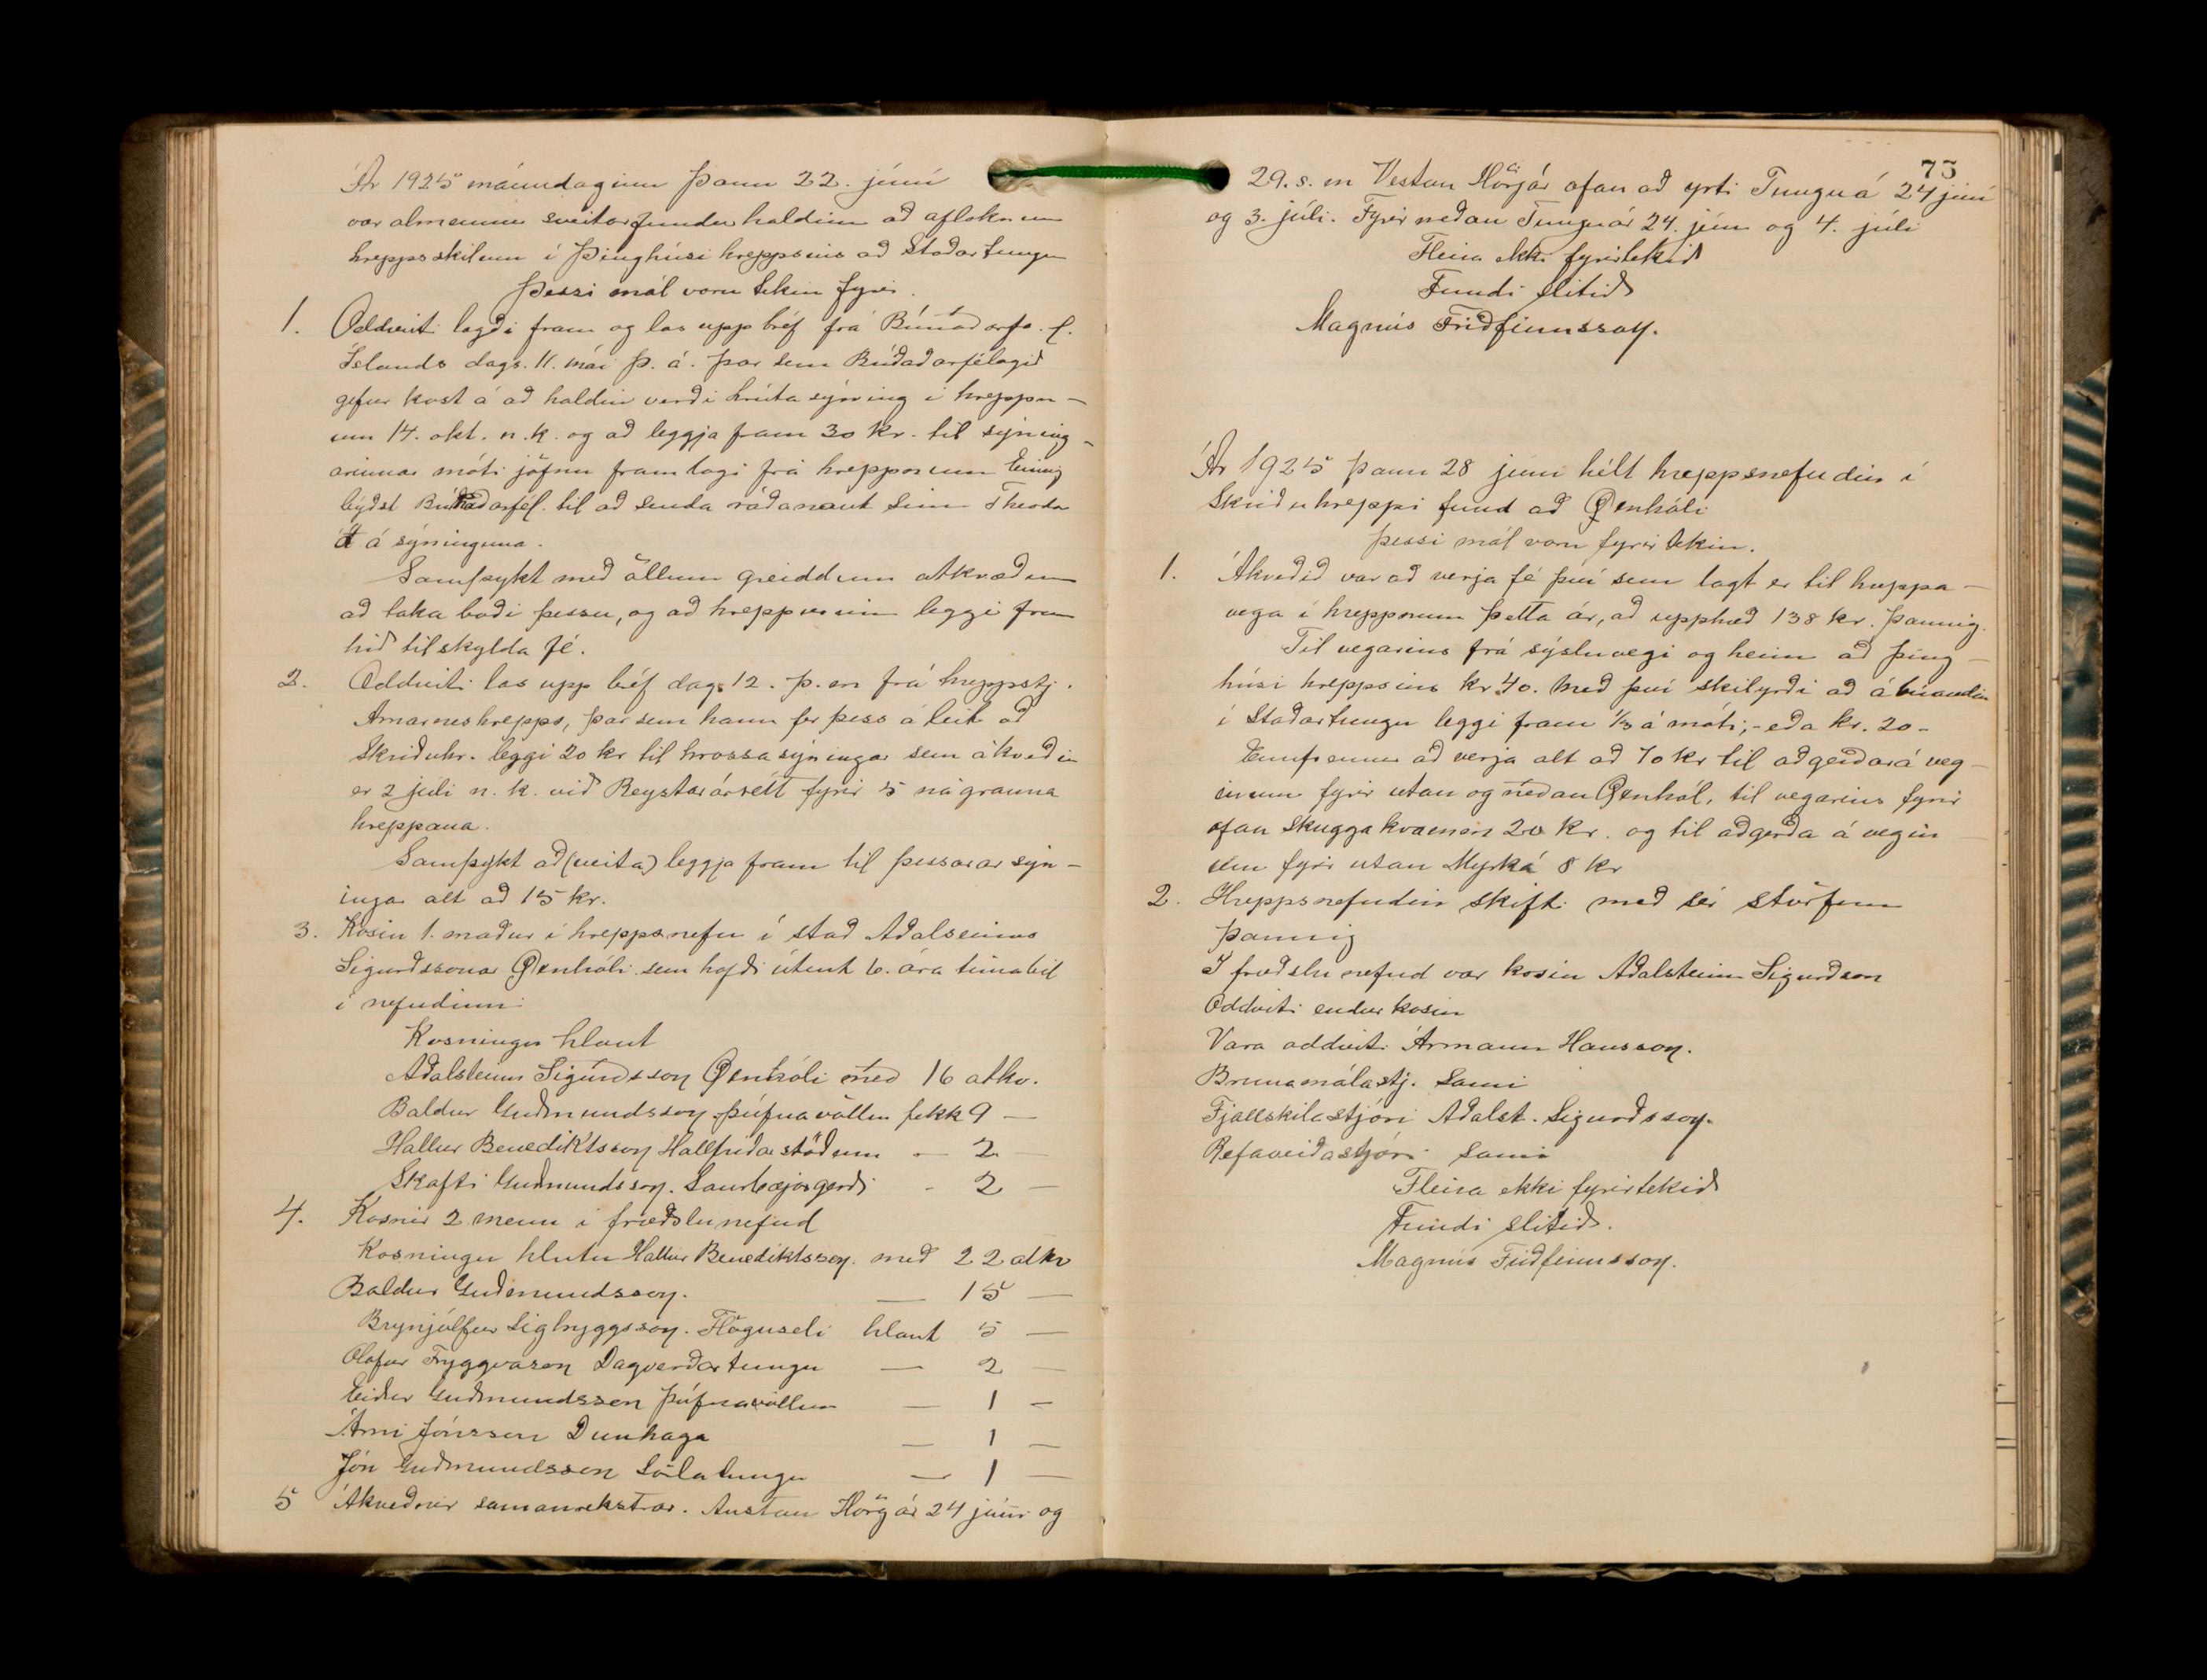 Ár 1925 mánudaginn þann 22. júní
var almennur sveitarfundur haldinn að afloknum
hreppsskilum í Þinghúsi hreppsins að Staðartungu
Þessi mál voru tekin fyrir.
1. Oddviti lagði fram og las upp bréf frá Búnaðarfo. f.
Íslands dags. 11. mái þ. á. þar sem Búðaðarfélagið
gefur kost á að haldin verði hrúta sýning í hreppn-
um 14. okt. n.k. og að leggja fram 30 kr. til sýning-
arinnar móti jöfnu framlagi frá hreppnum Einnig
býðst Búnaðarfél. til að senda ráðanaut sinn Theodor
á sýninguna.
Samþykt með öllum greiddum atkvæðum
að taka boði þessu, og að hreppurinn leggi fram
hið tilskylda fé.
2. Oddviti las upp bréf dags 12. þ.m frá hreppstj.
Arnarneshrepps, þar sem hann fer þess á leit að
Skriðuhr. leggi 20 kr til hrossasýningar sem ákveðin
er 2 júlí n.k. við Reystarárrétt fyrir 5 nágranna
hreppana.
Samþykt að (veita) leggja fram til þessarar sýn-
inga alt að 15 kr.
3. Kosin 1. maður í hreppsnefn í stað Aðalseinns
Sigurðssonar Öxnhóli sem hafði útent 6. ára tímabil
í nefndinni:
Kosningu hlaut
Aðalsteinn Sigurdsson Öxnhóli með 16 atkv.
Baldur Guðmundsson Þúfnavöllum fekk 9 —
Hallur Benediktsson Hallfríðarstöðum — 2 —
Skafti Guðmundsson. Saurbæjargerði - 2 —
4. Kosnir 2 menn í fræðslunefnd
Kosningu hlutu Hallur Benediktsson. með 22 atkv
Baldur Guðmundsson. — 15 —
Brynjólfur Sigtryggsson. Flöguseli hlaut 5 —
Olafur Tryggvason Dagverðartungu — 2 —
Eiður Guðmundsson Þúfnavöllum — 1 —
Árni Jónsson Dunhaga — 1 —
Jón Guðmundsson Sörlatungu — 1 —
5 Ákveðnir samanrekstrar. Austan Hörgár 24 júni og
75
29. s. m Vestan Hörgár ofan að ytri Tunguá 24 júni
og 3. júlí. Fyrir neðan Tunguár 24. júni og 4. júlí
Fleira ekki fyrirtekið
Fundi slitið
Magnús Friðfinnsson.
Ár 1925 þann 28 júni hélt hreppsnefndin í
Skriðuhreppi fund að Öxnhóli
Þessi mál voru fyrirtekin.
1. Ákveðið var að verja fé því sem lagt er til hreppa-
vega í hreppnum þetta ár, að upphæð 138 kr. Þannig.
Til vegarins frá sýsluvegi og heim að þing-
húsi hreppsins kr 40. með því skilyrði að ábúandin
í Staðartungu leggi fram 1/3 á móti; - eða kr. 20-
Ennfremur að verja alt að 70 kr til aðgerðar á veg-
inum fyrir utan og neðan Öxnhól, til vegarins fyrir
ofan Skuggakvamm 20 kr. og til aðgerða á vegin-
um fyrir utan Myrká 8 kr
2. Hreppsnefndin skifti með sér störfum
þannig
I fræðslunefnd var kosin Aðalsteinn Sigurðson
Oddviti endurkosin
Vara oddviti Ármann Hansson.
Brunamálastj. Sami
Fjallskilastjóri Aðalst. Sigurðsson.
Refaveiðastjóri Sami
Fleira ekki fyrirtekið
Fundi slitið.
Magnús Friðfinnsson.